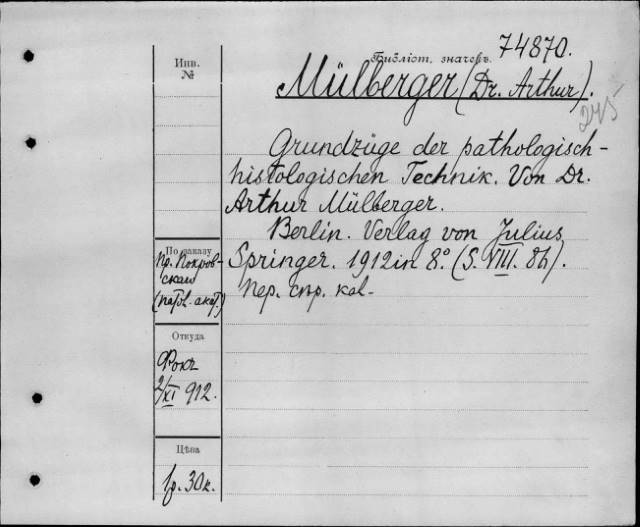 74870.
Библіот. значекъ
Инв.
№
Mülberger (Dr. Arthur).
245
Grundzüge der pathologisch-
histologischen Technik. Von Dr.
Arthur Mülberger.
Berlin. Verlag von Julius
Springer. 1912 in 8°. (S. VIII. 86).
Пер. сѣр. кал.
По заказу
Пр. Покров-
скаго
Откуда
Фокъ
2/XI 912.
Цѣна
1р. 30к.